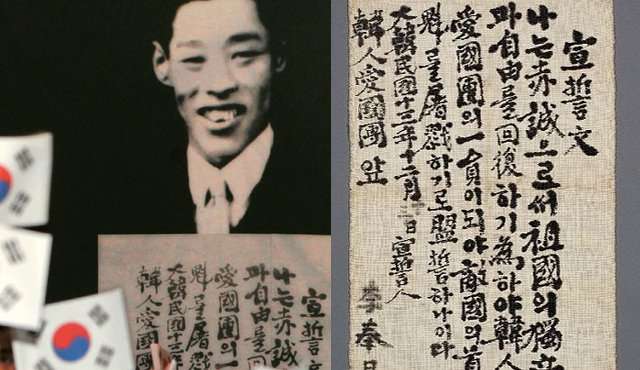 宣誓文
나는赤誠으로써祖國의獨
과自由를回復하기爲하야韓人
愛國團의一員이되야敵國의首
魁를屠戮하기로盟誓하나이다
大韓民國十三年十二月 日宣誓人
韓人愛國團앞
李奉
宣誓文
나는赤誠
과自由를回
愛國團의一
魁를屠戮
大韓民國十三年
韓人愛國